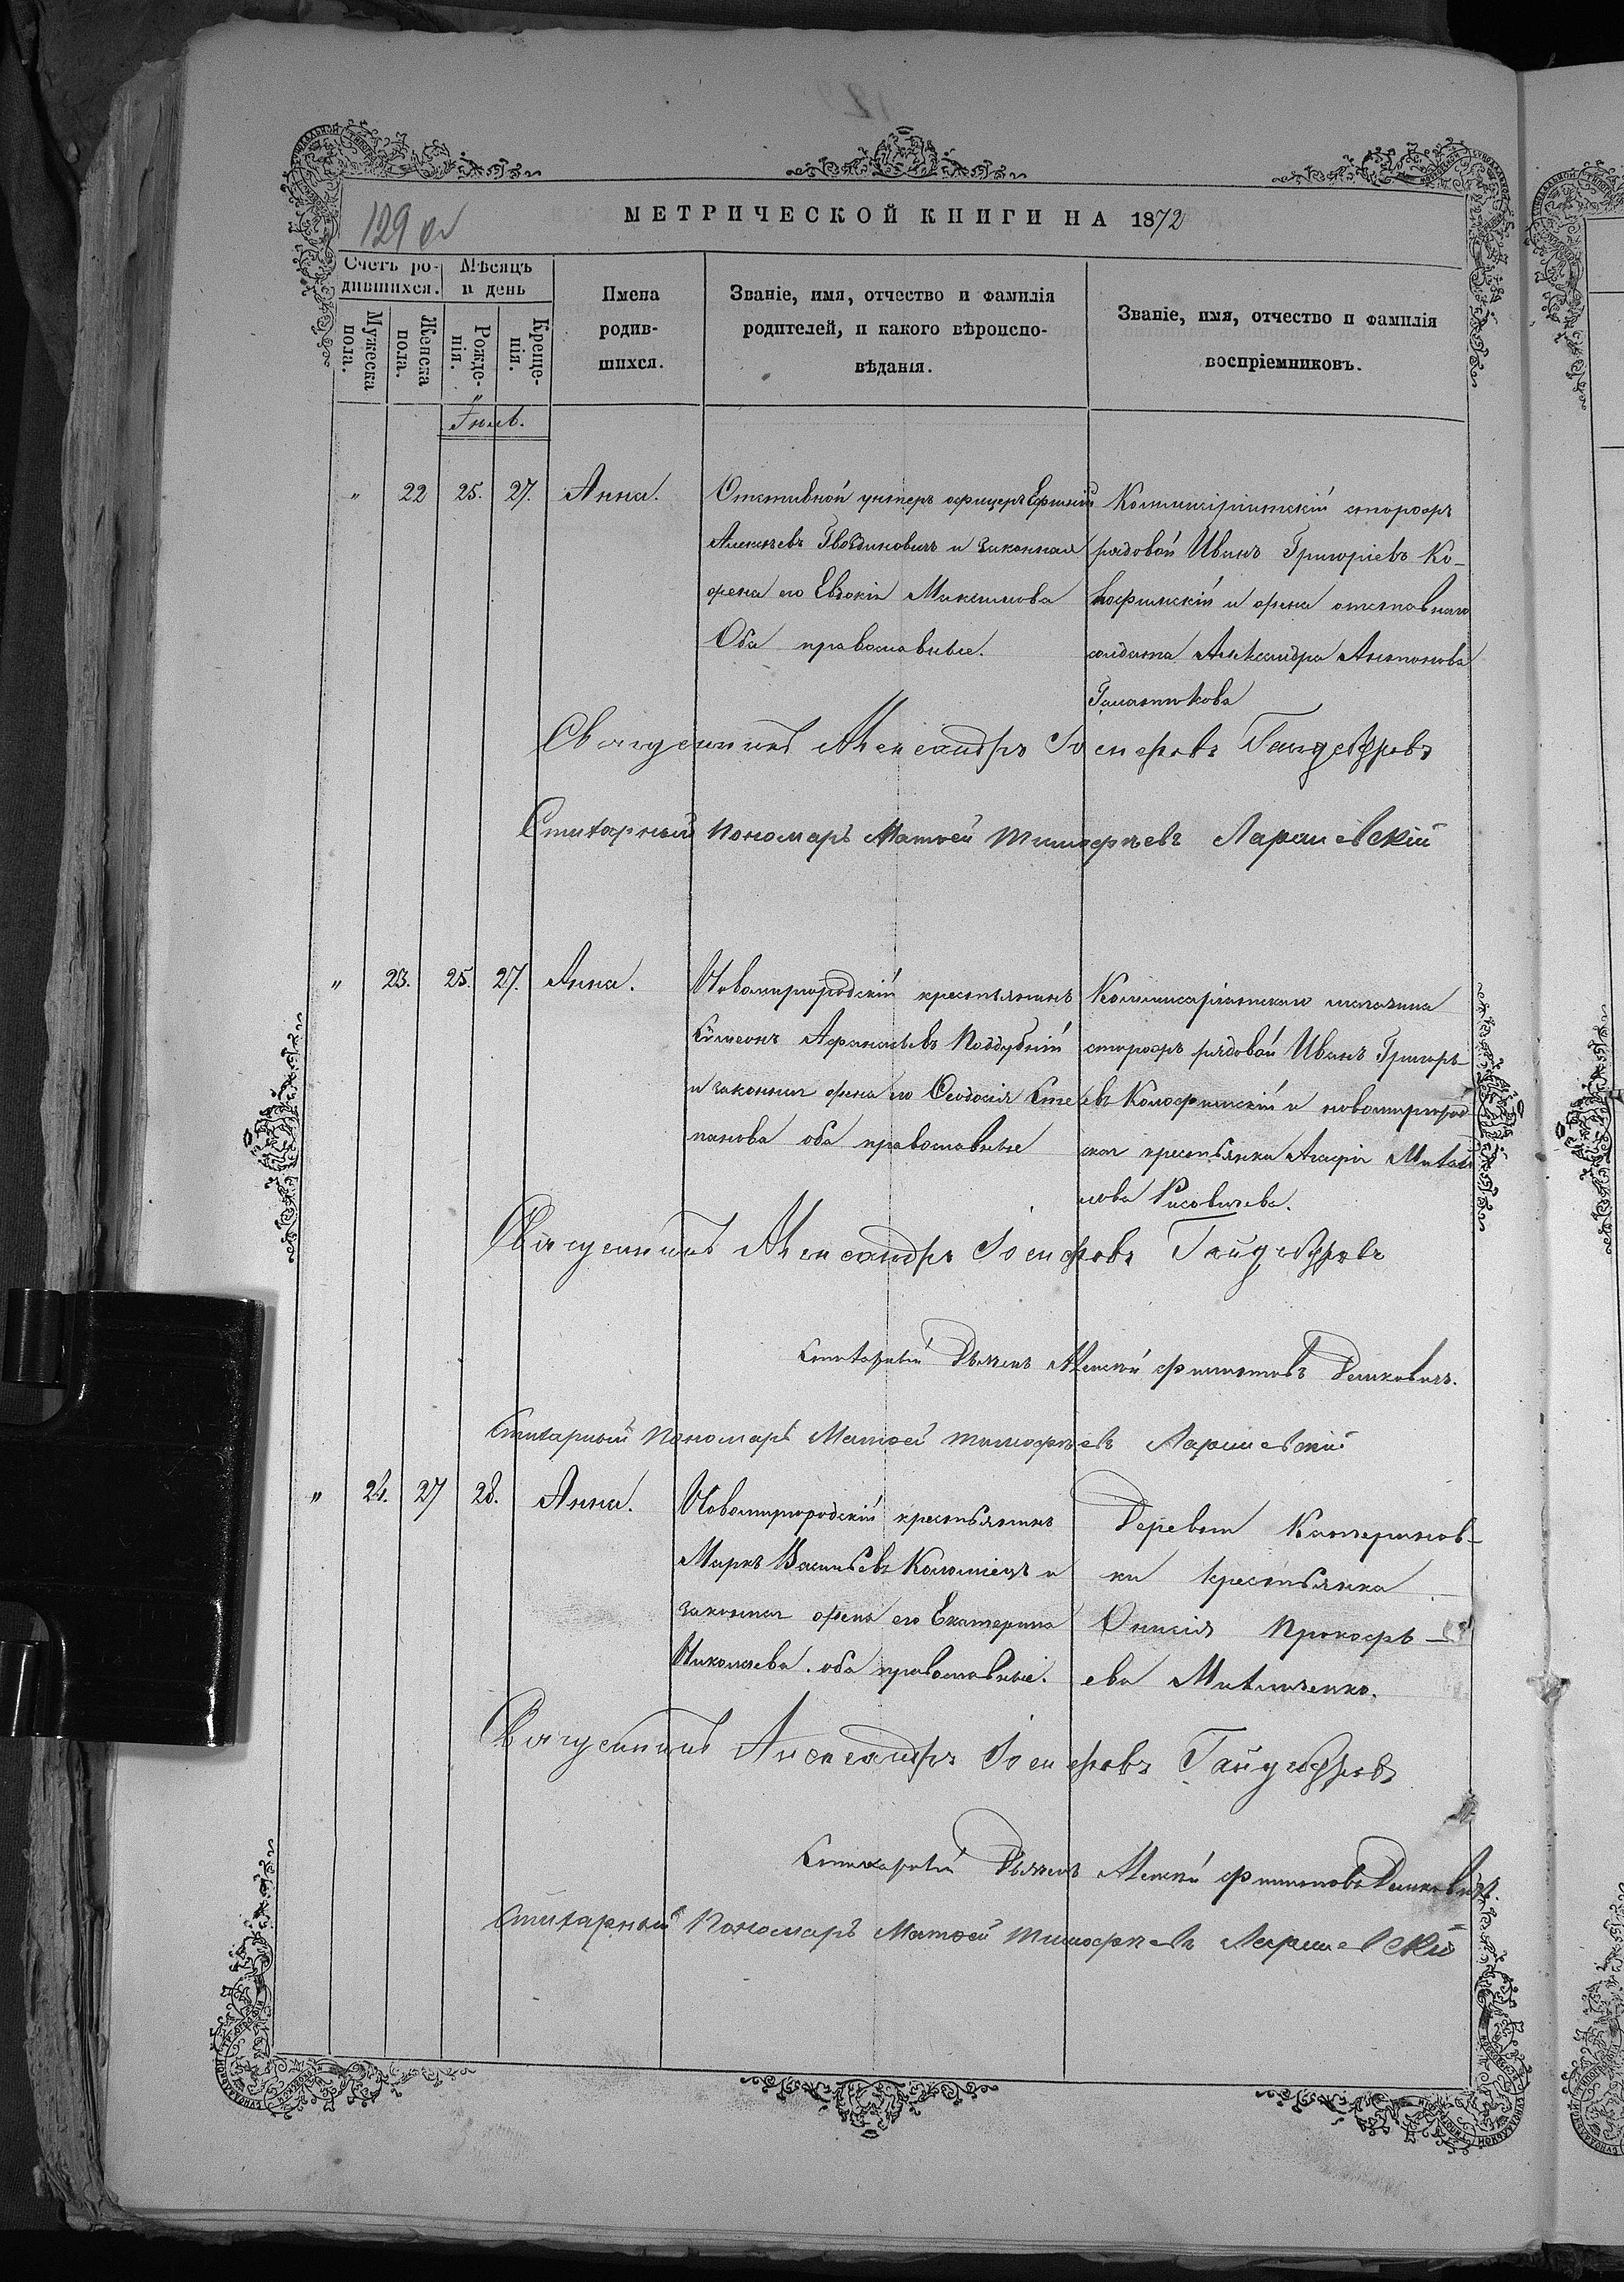 МЕТРИЧЕСКОЙ КНИГИ НА 1872
129 об
Счетъ родившихся.
Мѣсяцъ и день
Имена родившихся.
Званіе, имя, отчество и фамилія родителей, и какого вѣроисповѣданія.
Званіе, имя, отчество и фамилія воспріемниковъ.
Мужеска пола.
Женска пола.
Рожденія.
Крещенія.
" 22 25. 27. Анна.
Отставной унтеръ офицеръ Ефимій
Алексѣевъ Гвоздиковичъ и законная
жена его Евдокія Максимова
Оба православные.
Коммисаріатскій сторожъ
рядовой Иванъ Григоріевъ Ко-
и жена отставнаго
солдата Александра Антонова
Священникъ Александръ Іосифовъ Гайдебуровъ
Стихарный пономарь Матвей Тимофѣевъ Ларшевскій
" 23. 25. 27. Анна.
Новомиргородскій крестьянинъ
Симеонъ Афанасьевъ Поддубний
и законная жена его Феодосія Сте
панова оба православные
Коммисаріатскаго магазина
сторожъ рядовой Иванъ Григорь
евъ и новомиргород
ская крестьянка Агафія Михай
лова
Священникъ Александръ Іосифовъ Гайдебуровъ
Стихарный Дьячекъ Алексѣй Филиповъ Демковичъ.
Стихарный Пономарь Матвей Тимофѣевъ Ларшевскій
" 24. 27 28. Анна.
Новомиргородскій крестьянинъ
Маркъ Васильевъ Коломіецъ и
законная жена его Екатерина
Николаева. оба православные.
Деревни Катеринов-
ки крестьянка
Онисія Прокофь-
ева Михличенко.
Священникъ Александръ Іосифовъ Гайдебуровъ
Стихарный Дьячекъ Алексѣй Филиповъ Демковичъ.
Стихарный Пономарь Матвей Тимофѣевъ Ларшевскій